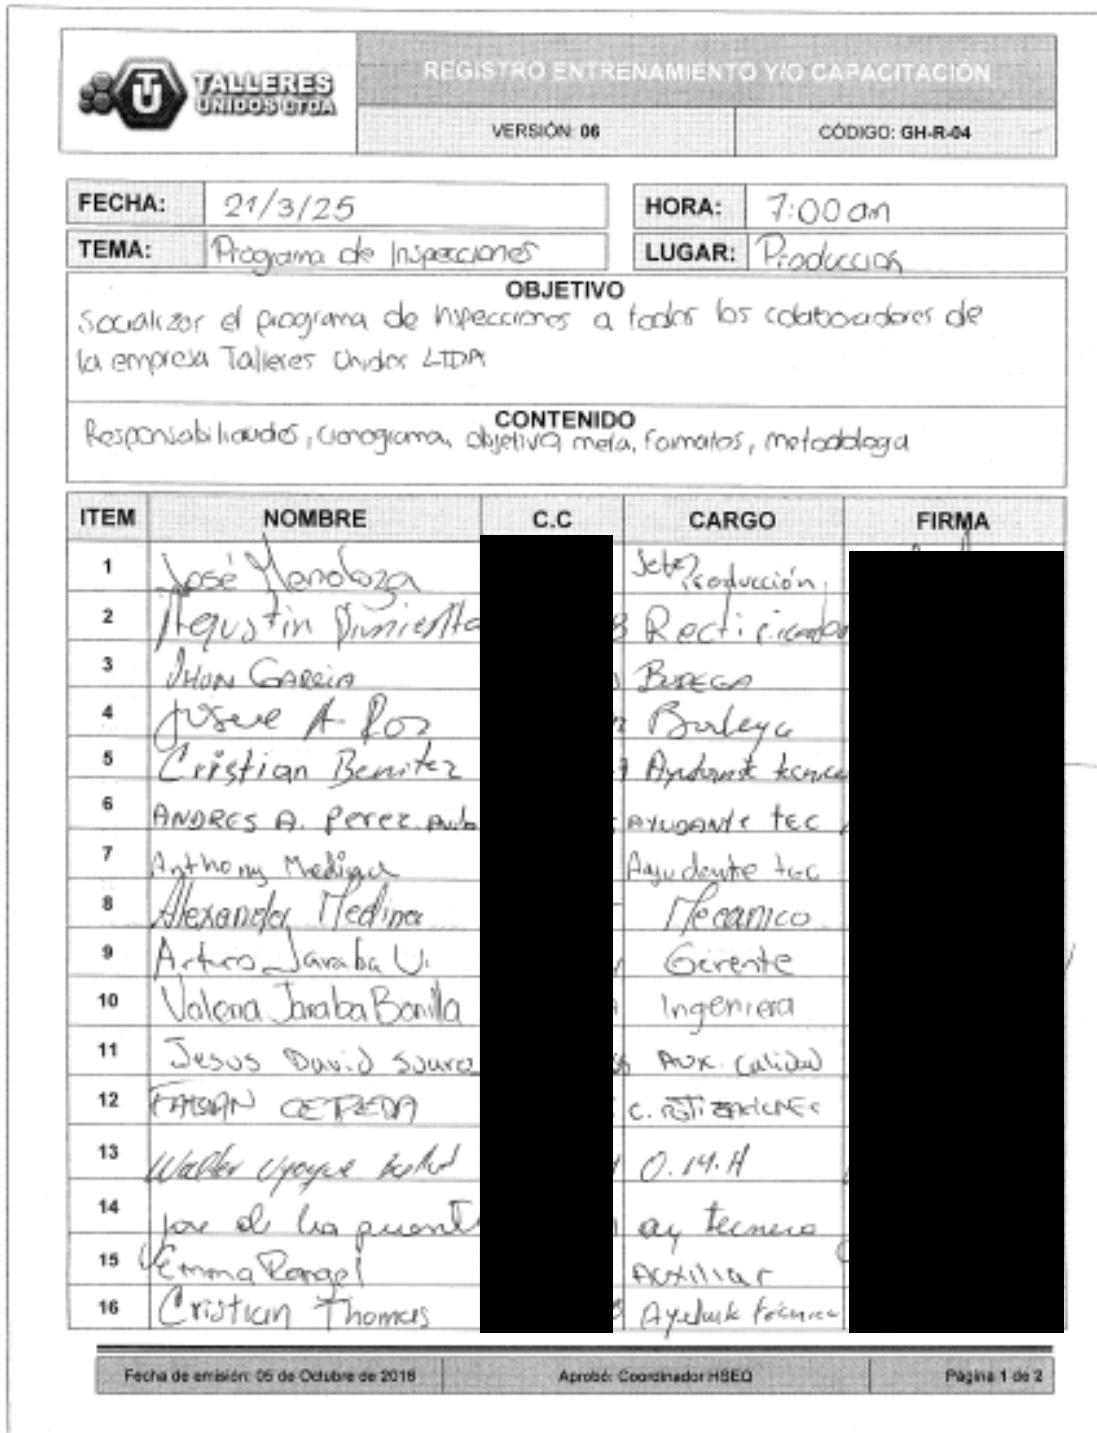 TALLERES
UNIDOS LTDA
REGISTRO ENTRENAMIENTO Y/O CAPACITACIÓN
VERSIÓN: 06
CÓDIGO: GH-R-04
FECHA: 21/3/25
HORA: 7:00 am
TEMA: Programa de Inspecciones
LUGAR: Produccion
OBJETIVO
Socializar el programa de inspecciones a todos los colaboradores de
la empresa Talleres Unidos LTDA
CONTENIDO
Responsabilidades, cronograma, objetivo, meta, formatos, metodologa
ITEM NOMBRE C.C CARGO FIRMA
1 José Mendoza Jefe Producción
2 Agustin Pimienta Rectificador
3 JHON GARCIA BODEGA
4 Josue A Bodega
5 Cristian Benitez Ayudante tecnico
6 ANDRES A. Perez AYUDANTE tec
7 Anthony Medina Ayudante tec
8 Alexander Medina Mecanico
9 Arturo Jaraba U. Gerente
10 Valeria Jaraba Bonilla Ingeniera
11 Jesus David Aux. Calidad
12 FABIAN CEPEDA C. COTIZACIONES
13 Walter O.M.H
14 jose de la puente ay tecnico
15 Yemma Rangel Auxiliar
16 Cristian Thomas Ayudante técnico
Fecha de emisión: 05 de Octubre de 2016
Aprobó: Coordinador HSEQ
Página 1 de 2